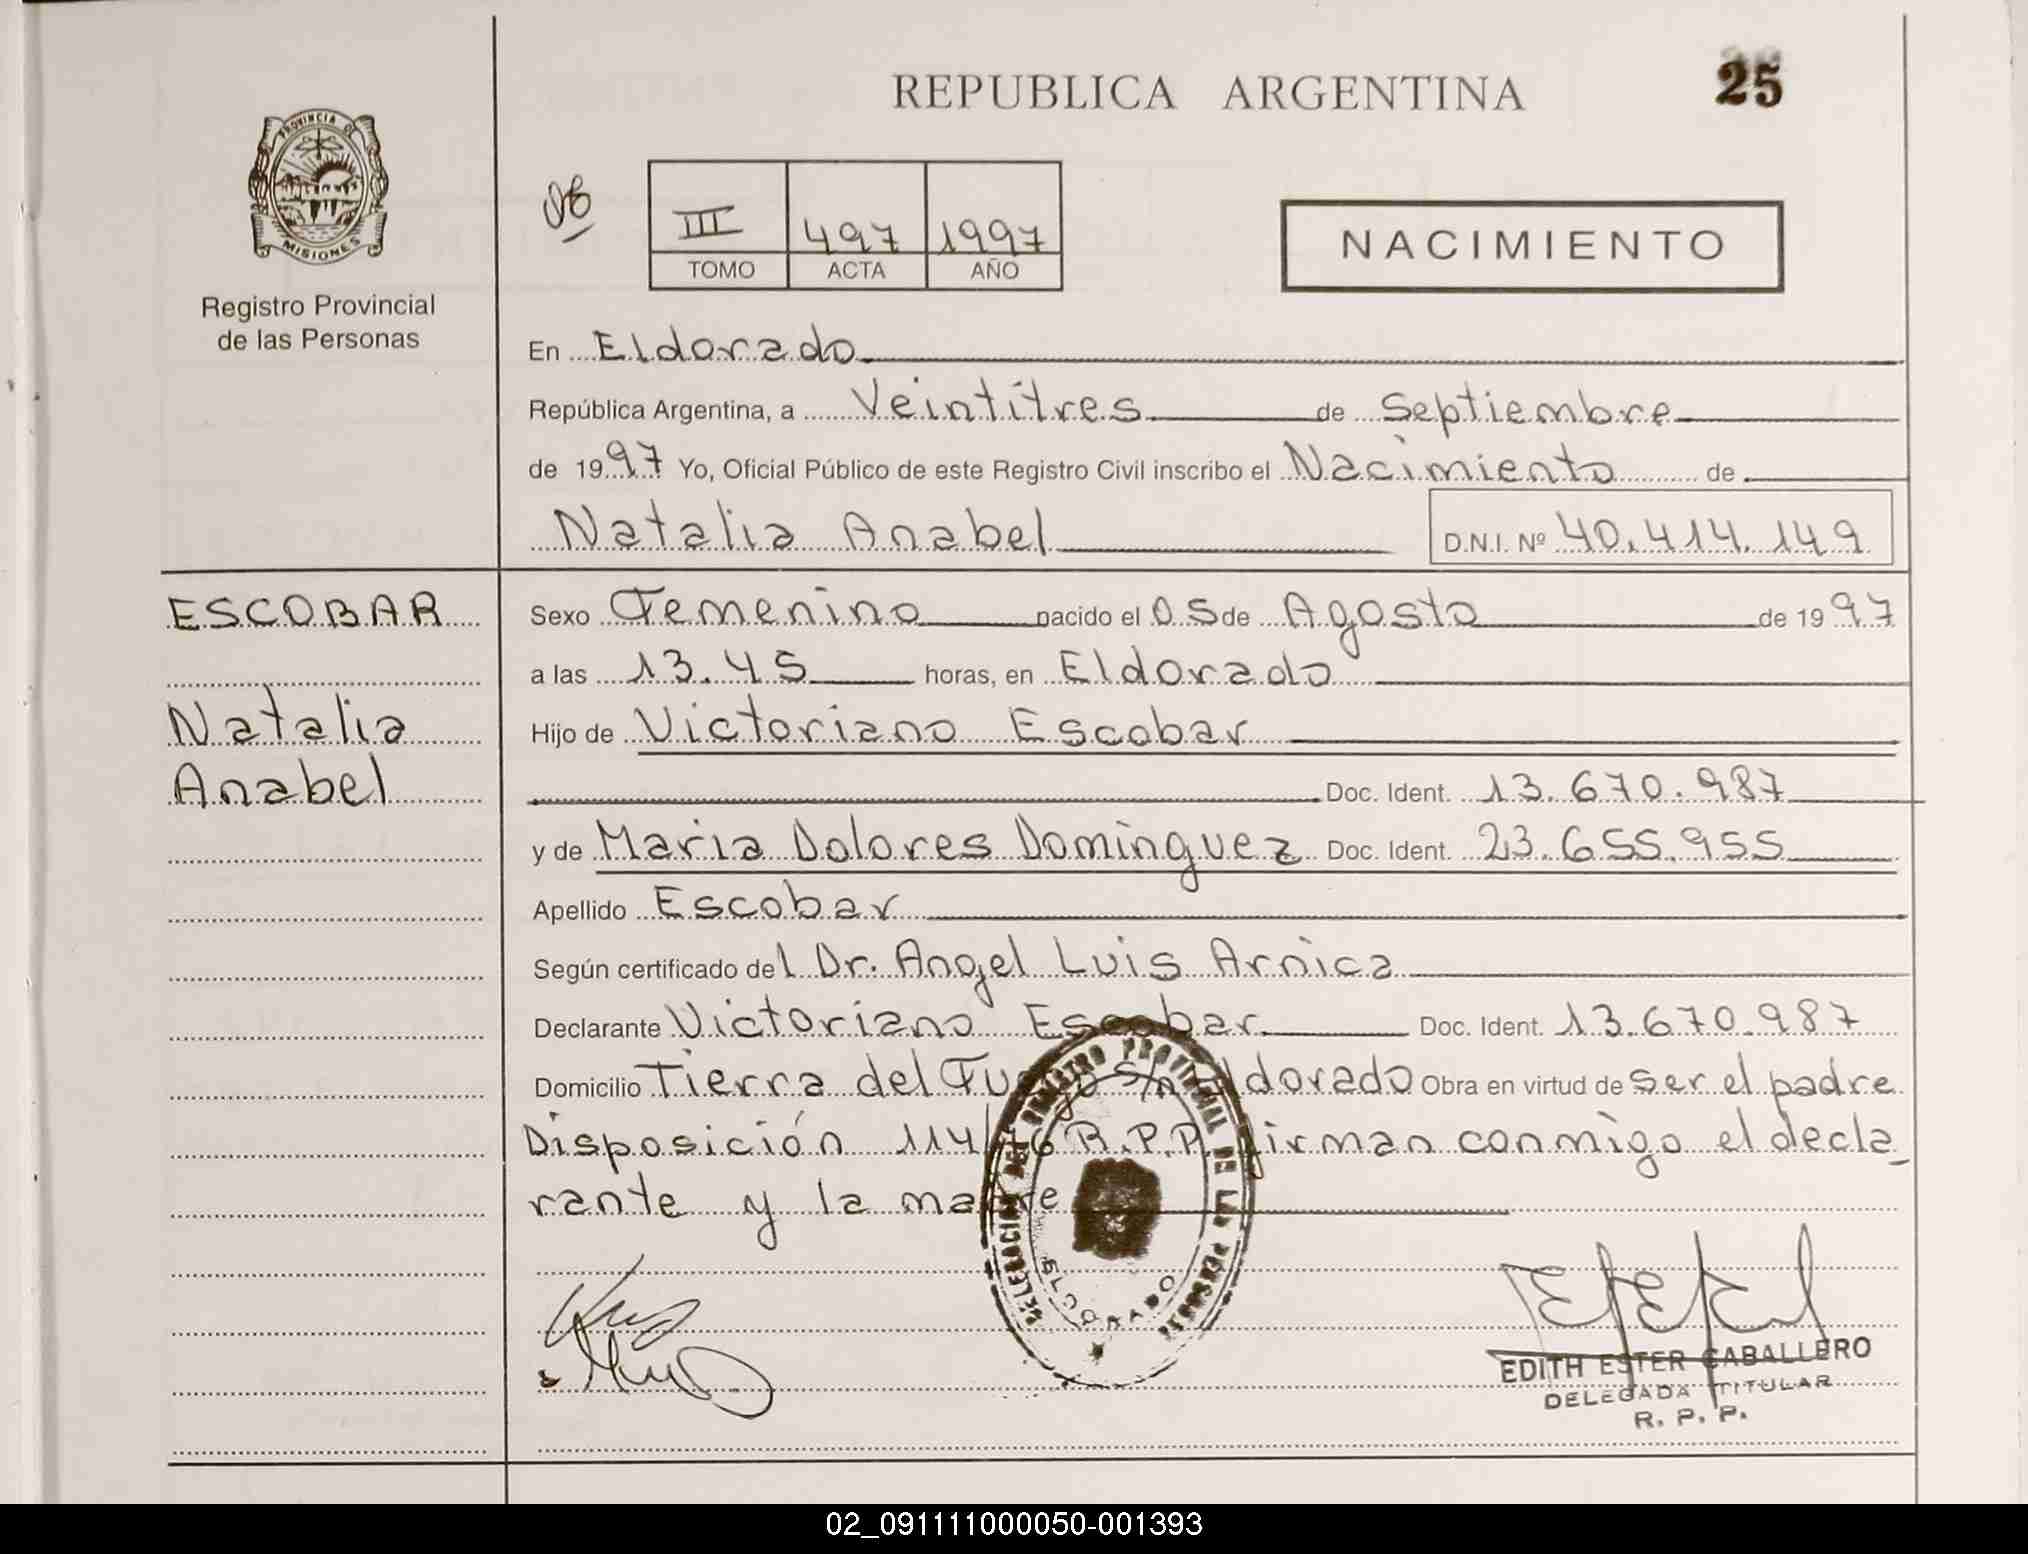 REPUBLICA ARGENTINA 25
PROVINCIA DE
MISIONES
Registro Provincial
de las Personas
III 497 1997
TOMO ACTA AÑO
NACIMIENTO
En Eldorado
República Argentina, a Veintitres de Septiembre
de 1997 Yo, Oficial Público de este Registro Civil inscribo el Nacimiento de
Natalia Anabel D.N.I. Nº 40.414.149
ESCOBAR
Natalia
Anabel
Sexo Femenino nacido el 05 de Agosto de 1997
a las 13.45 horas, en Eldorado
Hijo de Victoriano Escobar
Doc. Ident. 13.670.987
y de Maria Dolores Dominguez Doc. Ident. 23.655.955
Apellido Escobar
Según certificado del Dr. Angel Luis Arnica
Declarante Victoriano Escobar Doc. Ident. 13.670.987
Domicilio Tierra del Fuego s/n Eldorado Obra en virtud de ser el padre
Disposición 114/76 R.P.P. firman conmigo el decla_
rante y la madre
DELEGACION DEL REGISTRO PROVINCIAL DE LAS PERSONAS
ELDORADO
EDITH ESTER CABALLERO
DELEGADA TITULAR
R. P. P.
02_091111000050-001393